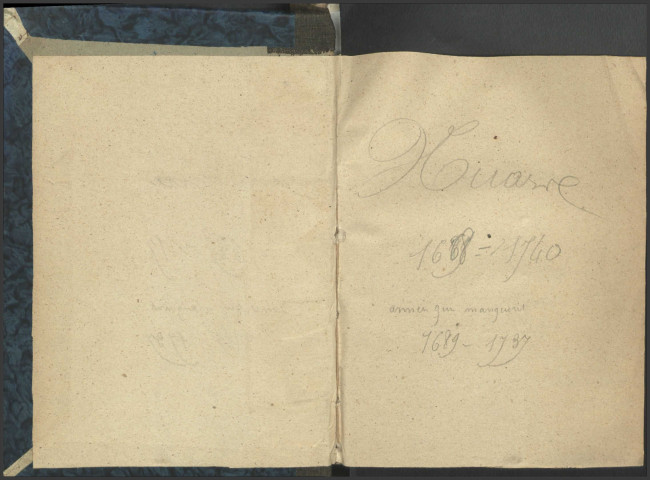 1688 - 1740
année qui manquent
1689 - 1737